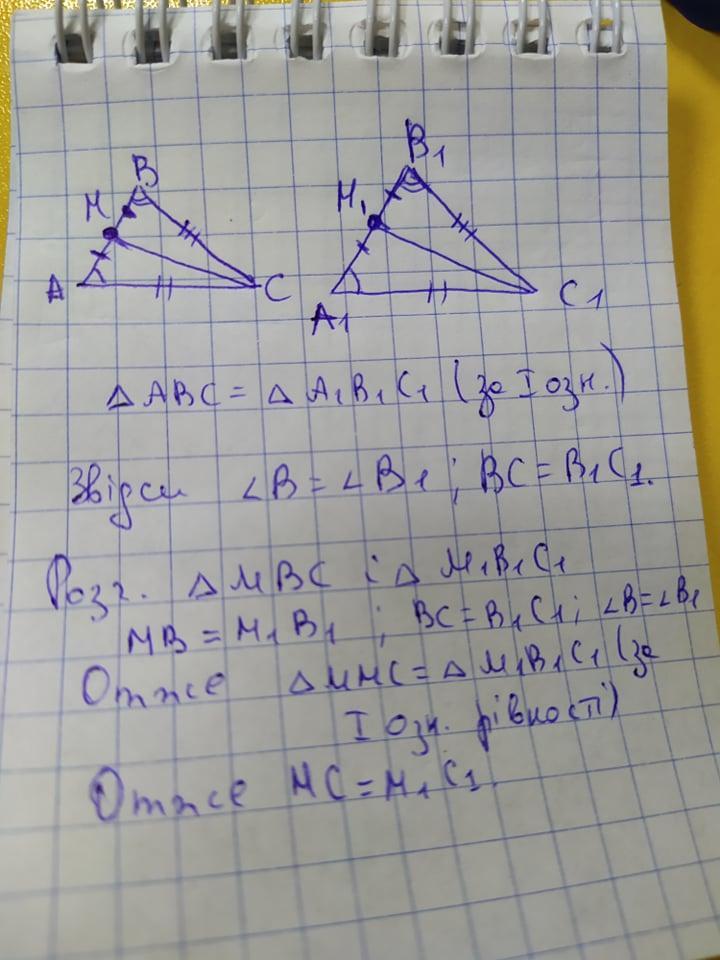 B
B₁
M
M₁
A
C
A₁
C1
△ABC = △A₁B₁C₁ (за I озн.)
Звідси ∠B = ∠B₁; BC = B₁C₁.
Розг. △MBC і △ M₁B₁C₁
MB = M₁B₁; BC = B₁C₁; ∠B = ∠B₁
Отже △MMC = △M₁B₁C₁ (за
I озн. рівності)
Отже MC = M₁C₁.